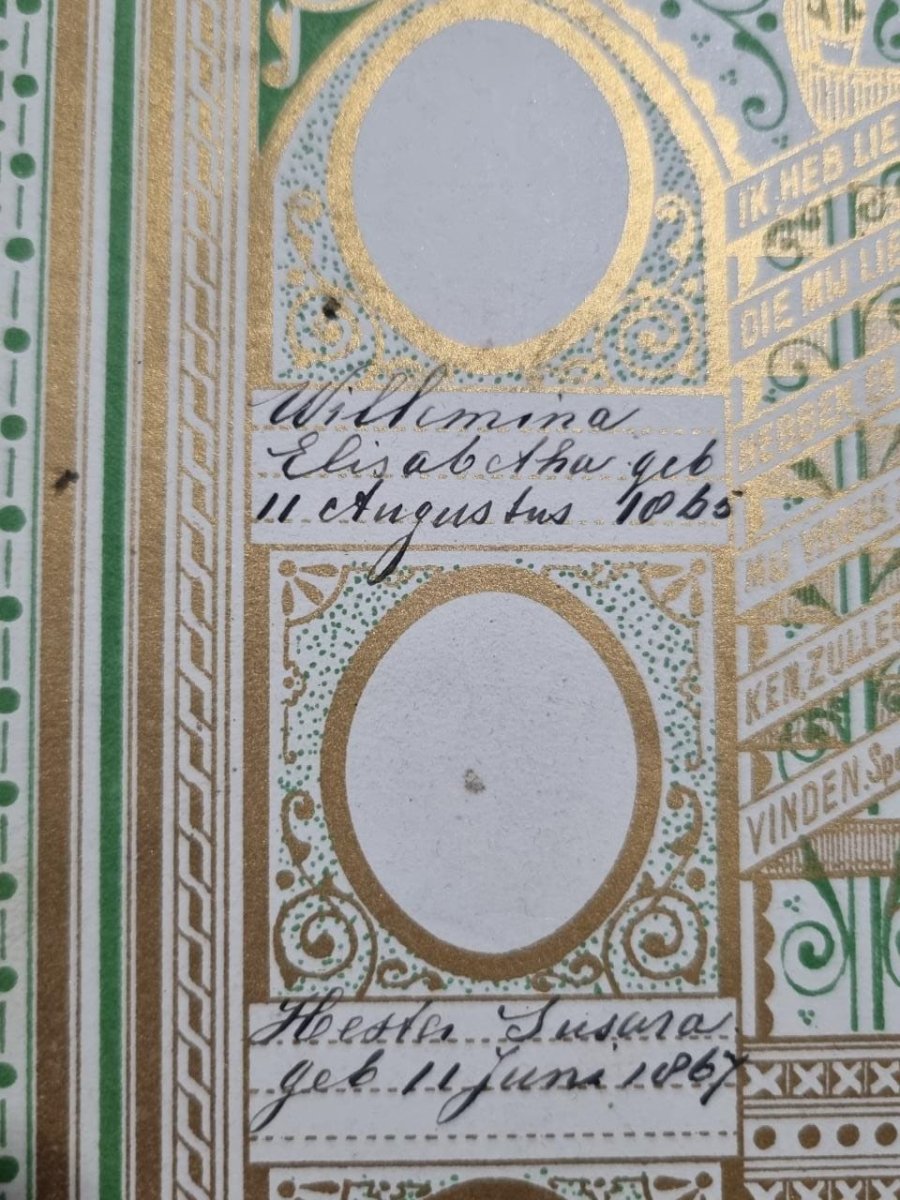 Willemina
Elisabetha geb
11 Augustus 1865
Hester Susara
geb 11 Juni 1867
IK HEB LIE
DIE MIJ LIE
HEBBEN
KEN, ZULLEN
VINDEN. Spr